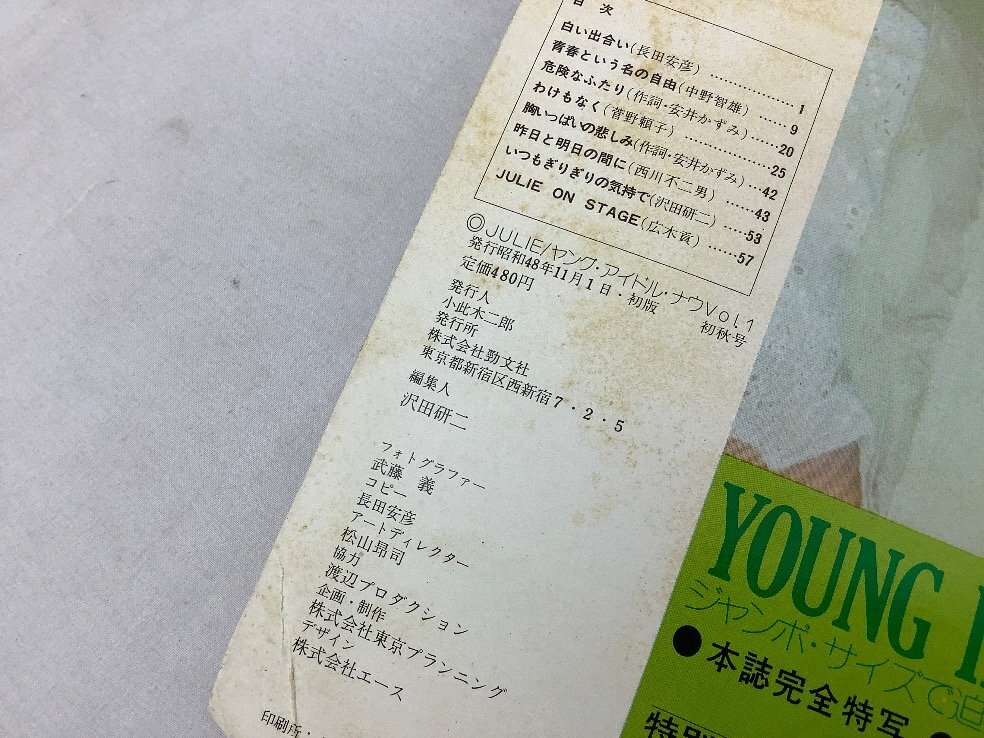 目次
白い出合い(長田安彦)……………1
青春という名の自由(中野智雄)……9
危険なふたり(作詞・安井かずみ)……20
わけもなく(菅野頼子)……………25
胸いっぱいの悲しみ(作詞・安井かずみ)…42
昨日と明日の間に(西川不二男)……43
いつもぎりぎりの気持で(沢田研二)……53
JULIE ON STAGE(広木 貢)……57
◎JULIE/ヤング・アイドル・ナウVol.1
発行昭和48年11月1日・初版 初秋号
定価480円
発行人
小此木二郎
発行所
株式会社勁文社
東京都新宿区西新宿7・2・5
編集人
沢田研二
フォトグラファー
武藤 義
コピー
長田安彦
アートディレクター
松山昂司
協力
渡辺プロダクション
企画・制作
株式会社東京プランニング
デザイン
株式会社エース
印刷所・
YOUNG
ジャンボ・サイズで迫
●本誌完全特写
特別